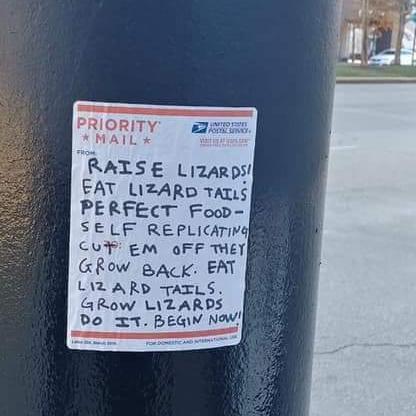 PRIORITY
★ MAIL ★
UNITED STATES
POSTAL SERVICE
VISIT US AT USPS.COM
FROM:
RAISE LIZARDS!
EAT LIZARD TAILS
PERFECT FOOD-
SELF REPLICATING
TO:
CUT EM OFF THEY
GROW BACK. EAT
LIZARD TAILS.
GROW LIZARDS
DO IT. BEGIN NOW!
FOR DOMESTIC AND INTERNATIONAL USE